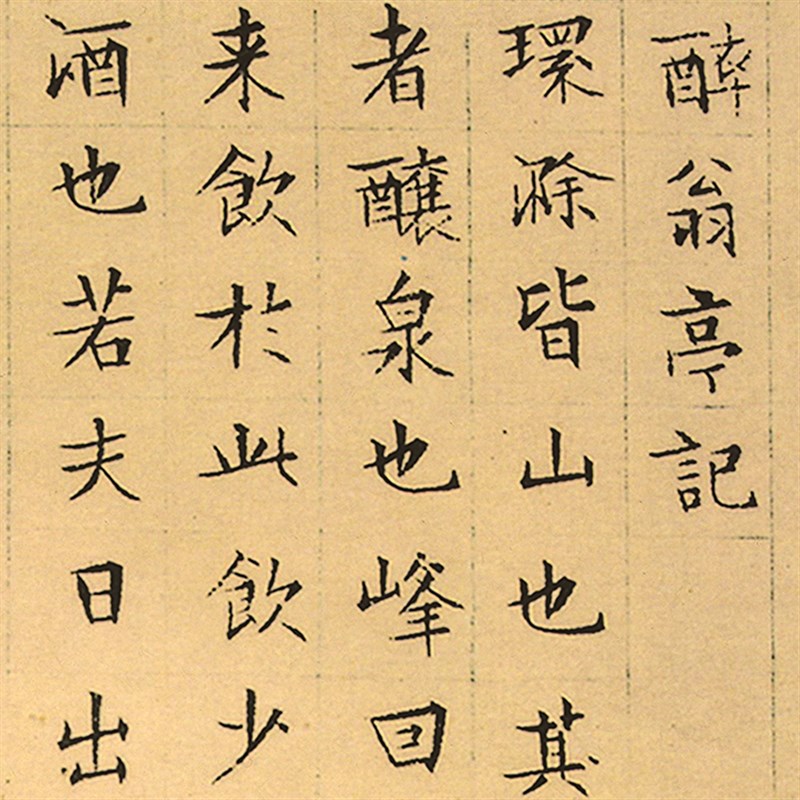 醉翁亭記
環滁皆山也其
者釀泉也峰回
来飲於此飲少
酒也若夫日出